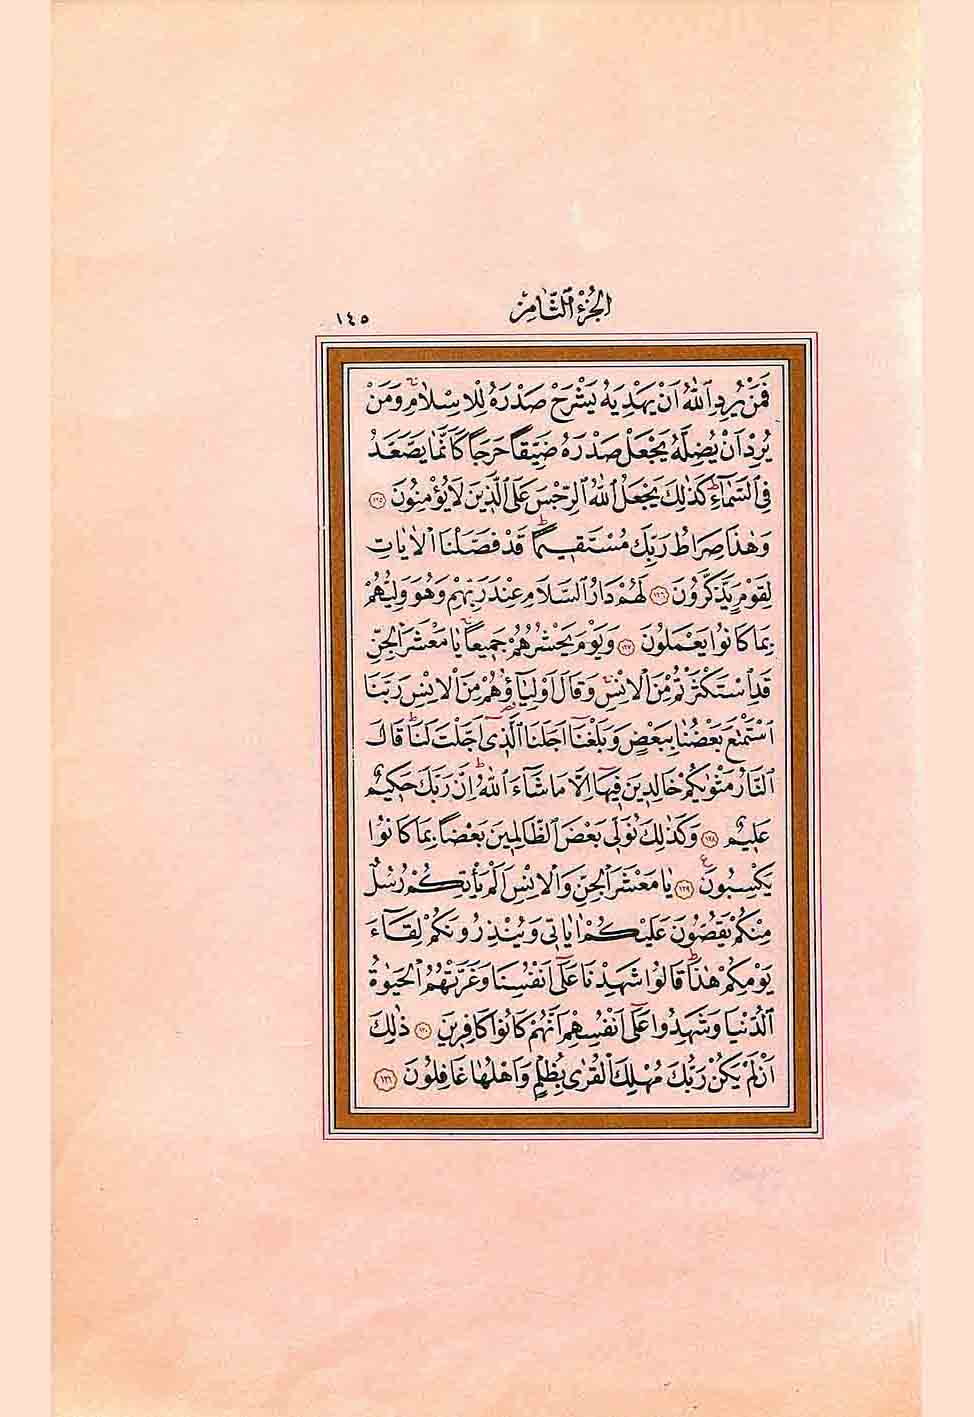 الجزء الثامن
١٤٥
فَمَنْ يُرِدِ ٱللّٰهُ اَنْ يَهْدِيَهُ يَشْرَحْ صَدْرَهُ لِلْاِسْلَامِ وَمَنْ
يُرِدْ اَنْ يُضِلَّهُ يَجْعَلْ صَدْرَهُ ضَيِّقاً حَرَجاً كَاَنَّمَا يَصَّعَّدُ
فِي ٱلسَّمَٓاءِ كَذٰلِكَ يَجْعَلُ ٱللّٰهُ ٱلرِّجْسَ عَلَى ٱلَّذِينَ لَا يُؤْمِنُونَ ١٢٥
وَهٰذَا صِرَاطُ رَبِّكَ مُسْتَقِيماً قَدْ فَصَّلْنَا ٱلْاٰيَاتِ
لِقَوْمٍ يَذَّكَّرُونَ ١٢٦ لَهُمْ دَارُ ٱلسَّلَامِ عِنْدَ رَبِّهِمْ وَهُوَ وَلِيُّهُمْ
بِمَا كَانُوا يَعْمَلُونَ ١٢٧ وَيَوْمَ يَحْشُرُهُمْ جَمِيعاً يَا مَعْشَرَ ٱلْجِنِّ
قَدِ ٱسْتَكْثَرْتُمْ مِنَ ٱلْاِنْسِ وَقَالَ اَوْلِيَٓاؤُ۬هُمْ مِنَ ٱلْاِنْسِ رَبَّنَا
ٱسْتَمْتَعَ بَعْضُنَا بِبَعْضٍ وَبَلَغْنَٓا اَجَلَنَا ٱلَّذِٓي اَجَّلْتَ لَنَا قَالَ
ٱلنَّارُ مَثْوٰيكُمْ خَالِدِينَ فِيهَٓا اِلَّا مَا شَٓاءَ ٱللّٰهُ اِنَّ رَبَّكَ حَكِيمٌ
عَلِيمٌ ١٢٨ وَكَذٰلِكَ نُوَلِّي بَعْضَ ٱلظَّالِمِينَ بَعْضاً بِمَا كَانُوا
يَكْسِبُونَ ١٢٩ يَا مَعْشَرَ ٱلْجِنِّ وَٱلْاِنْسِ اَلَمْ يَأْتِكُمْ رُسُلٌ
مِنْكُمْ يَقُصُّونَ عَلَيْكُمْ اٰيَاتِي وَيُنْذِرُونَكُمْ لِقَٓاءَ
يَوْمِكُمْ هٰذَا قَالُوا شَهِدْنَا عَلٰٓى اَنْفُسِنَا وَغَرَّتْهُمُ ٱلْحَيٰوةُ
ٱلدُّنْيَا وَشَهِدُوا عَلٰٓى اَنْفُسِهِمْ اَنَّهُمْ كَانُوا كَافِرِينَ ١٣٠ ذٰلِكَ
اَنْ لَمْ يَكُنْ رَبُّكَ مُهْلِكَ ٱلْقُرٰى بِظُلْمٍ وَاَهْلُهَا غَافِلُونَ ١٣١